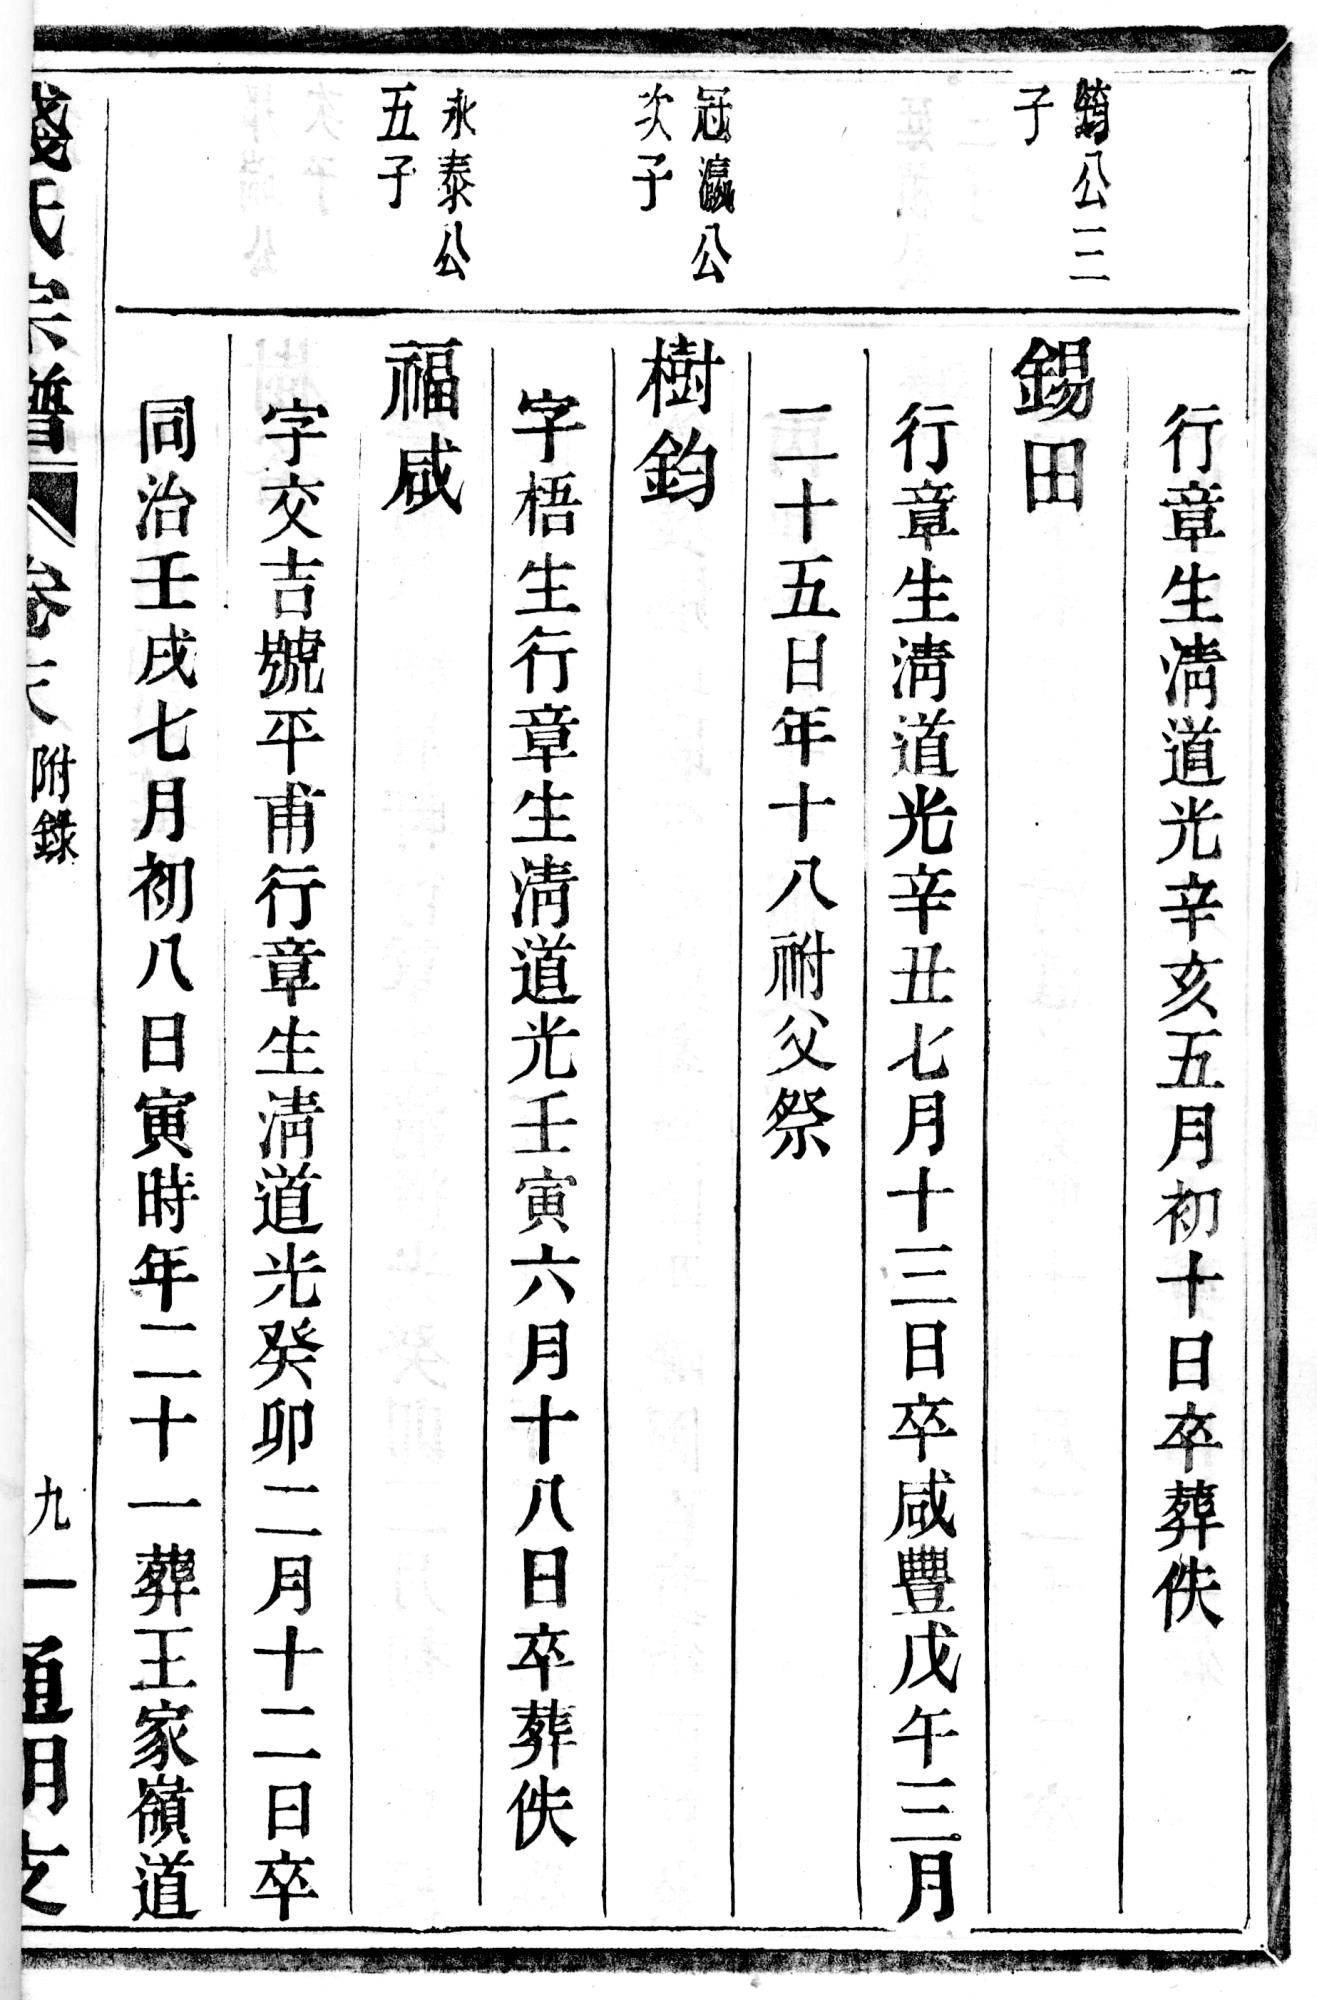 行章生淸道光辛亥五月初十日卒葬佚
筠公三
子
錫田
行章生淸道光辛丑七月十三日卒咸豐戊午三月
二十五日年十八祔父祭
冠瀛公
次子
樹鈞
字梧生行章生淸道光壬寅六月十八日卒葬佚
永泰公
五子
福咸
字交吉號平甫行章生淸道光癸卯二月十二日卒
同治壬戌七月初八日寅時年二十一葬王家嶺道
錢氏宗譜 卷末 附錄 九 通明支